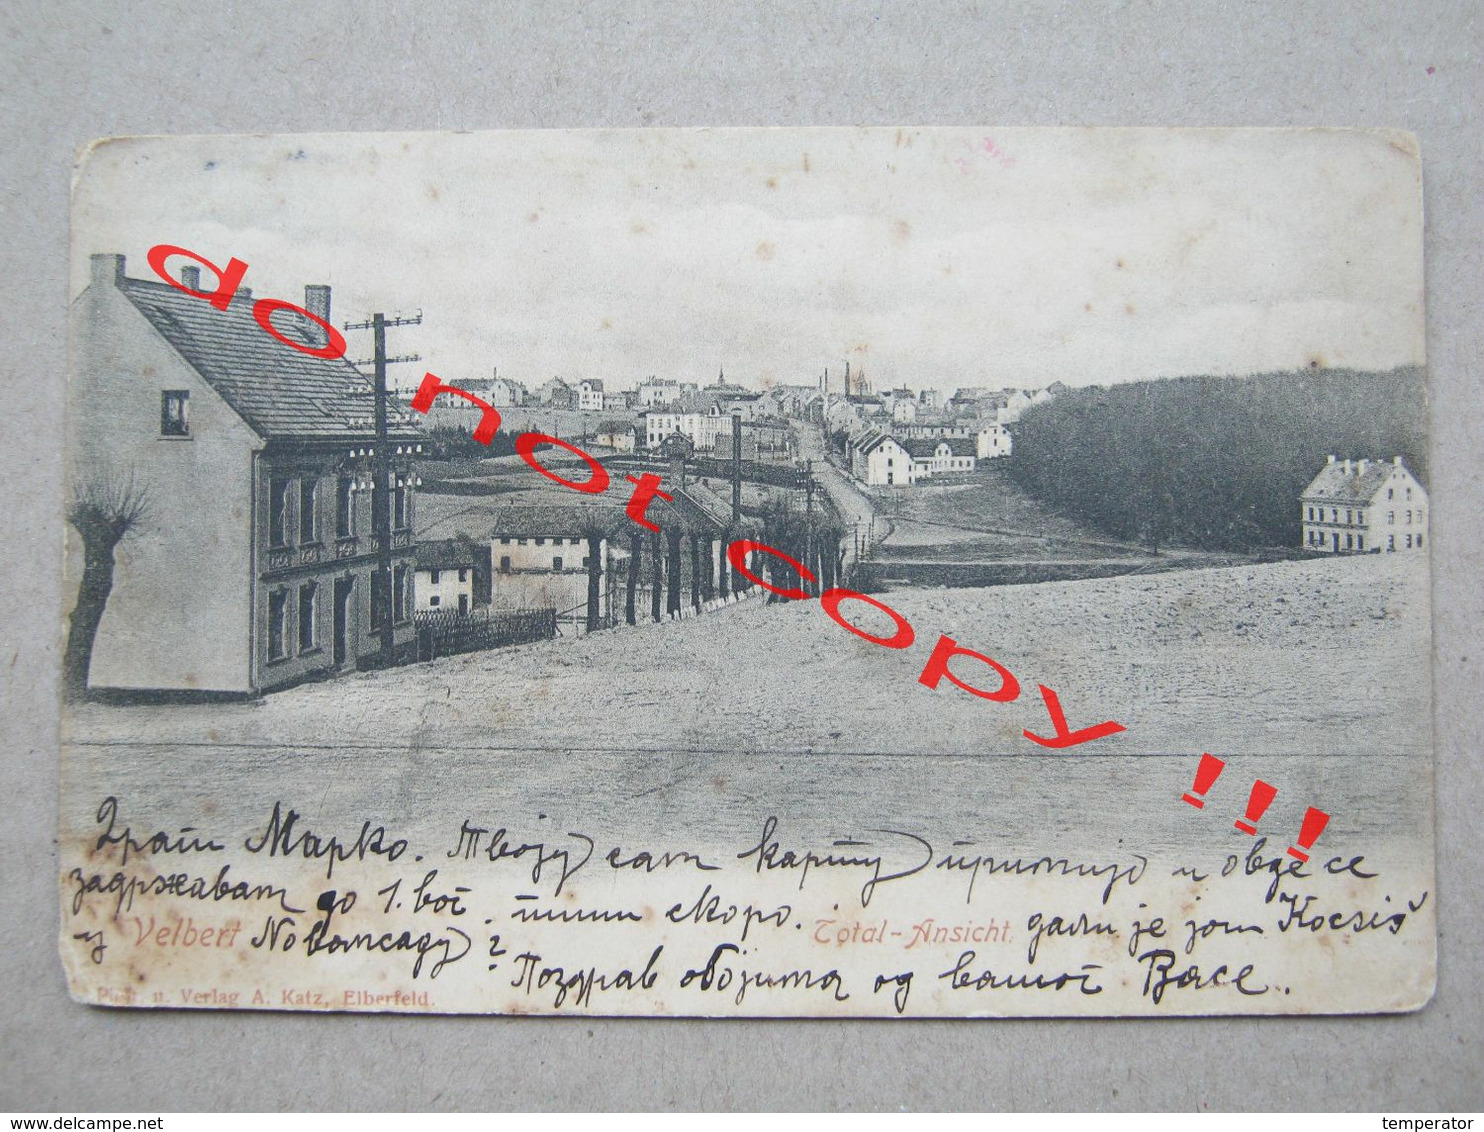 do not copy !!!
Драги Марко. Твоју сам карту примио и овде се
задржавам до 1. ког. пиши скоро. дали је још Kocsiš
у Новомсаду?
Velbert Total-Ansicht.
Поздрав обојима од вашег Васе.
Plett u. Verlag A. Katz, Elberfeld.
www.delcampe.net
temperator